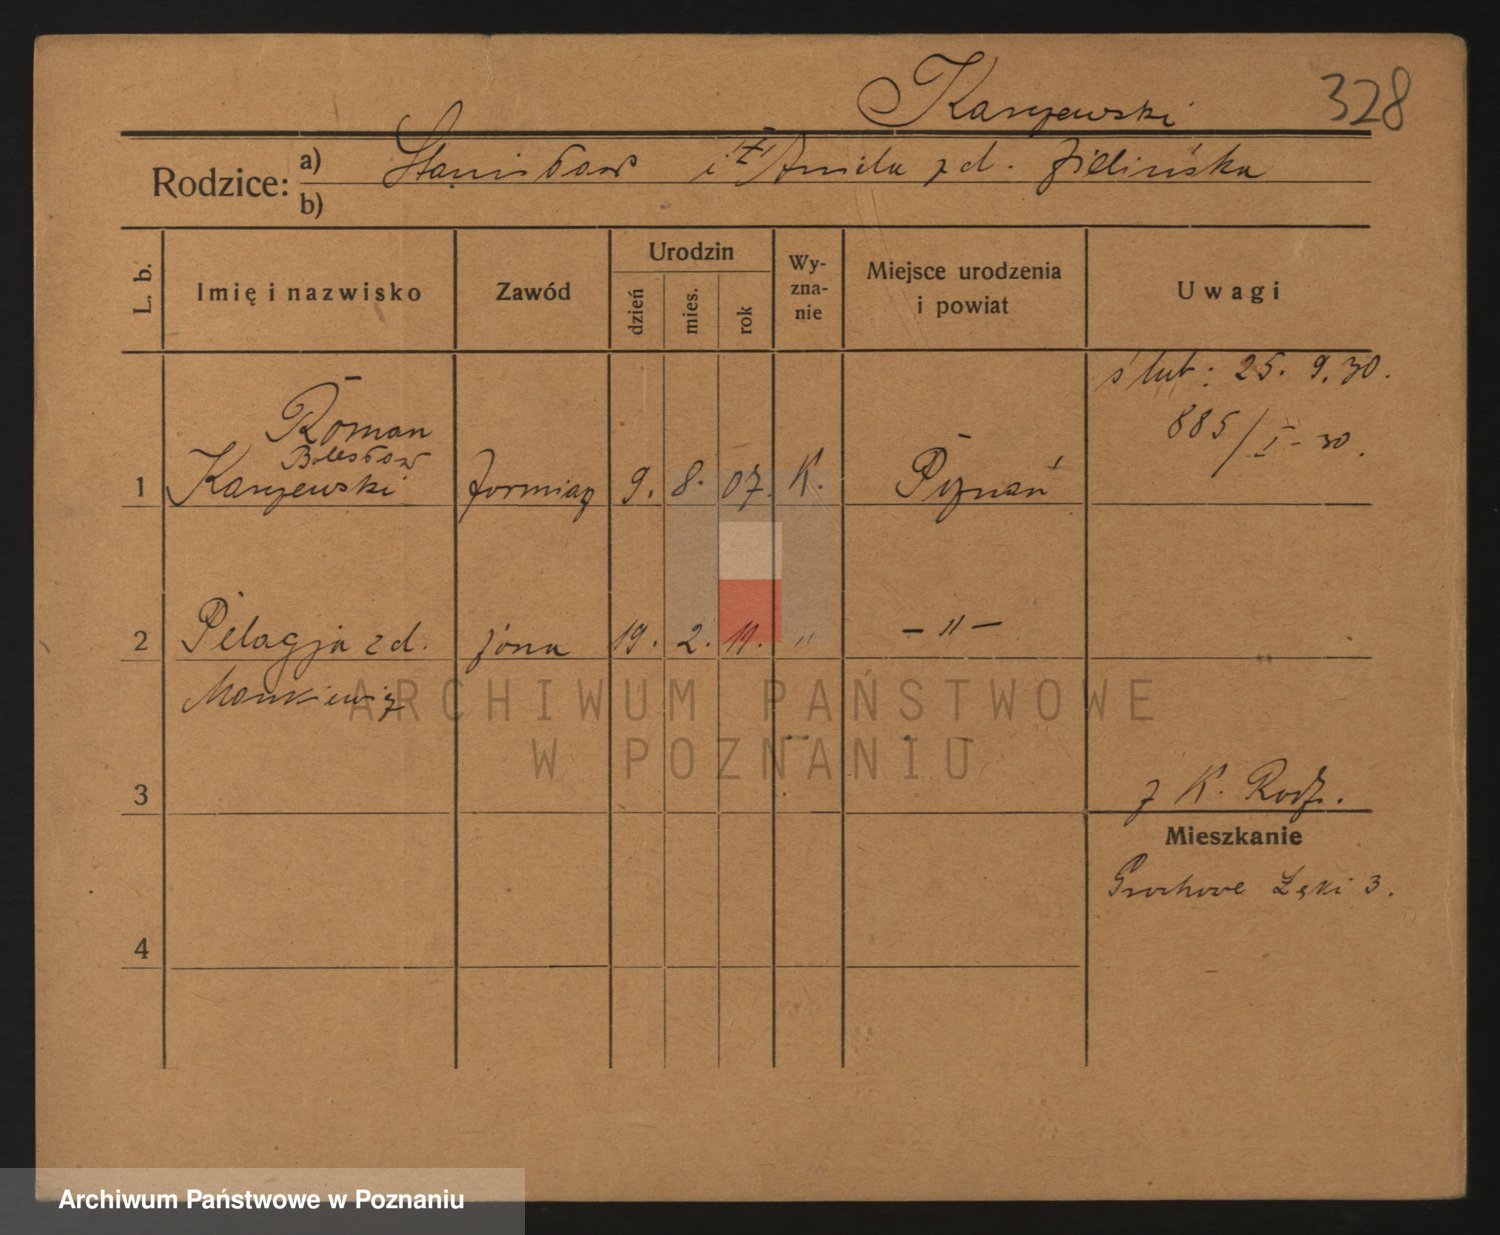 Karyewski 328
Rodzice: a) Stanisław i Aniela z d. Zielińska
b)
L. b. Imię i nazwisko Zawód Urodzin dzień mies. rok Wy-zna-nie Miejsce urodzenia i powiat Uwagi
ślub: 25. 9. 30.
885/I-30.
Roman
Bolesław
1 Karyewski formiarz 9. 8. 07. K. Poznań
2 Pelagja z d. żona 19. 2. 11. " - " -
Monkiewicz
ARCHIWUM PAŃSTWOWE
W POZNANIU
3 z K. Rodz.
Mieszkanie
Grochowe Łąki 3.
4
Archiwum Państwowe w Poznaniu